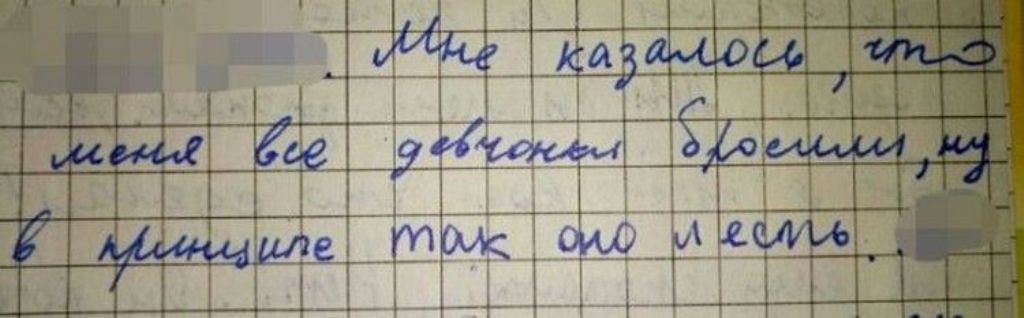 . Мне казалось, что
меня все девчонки бросили, ну
в принципе так оно и есть..